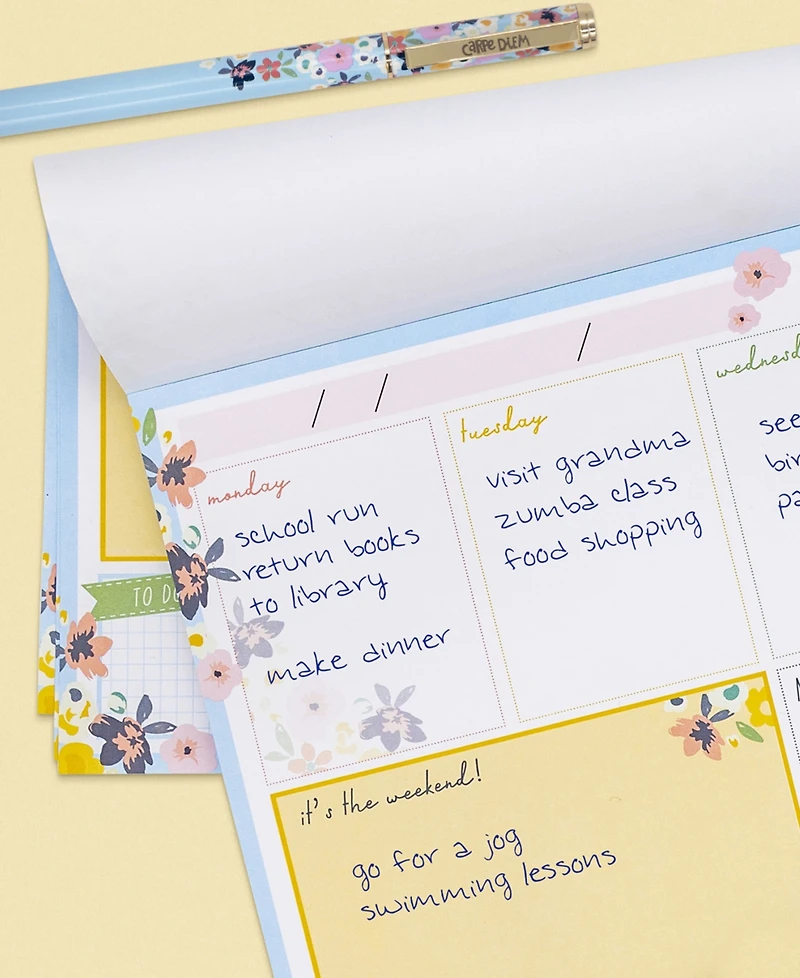 CARPE DIEM
/ / /
monday
school run
return books
to library
make dinner
tuesday
visit grandma
zumba class
food shopping
see
TO
it's the weekend!
go for a jog
swimming lessons